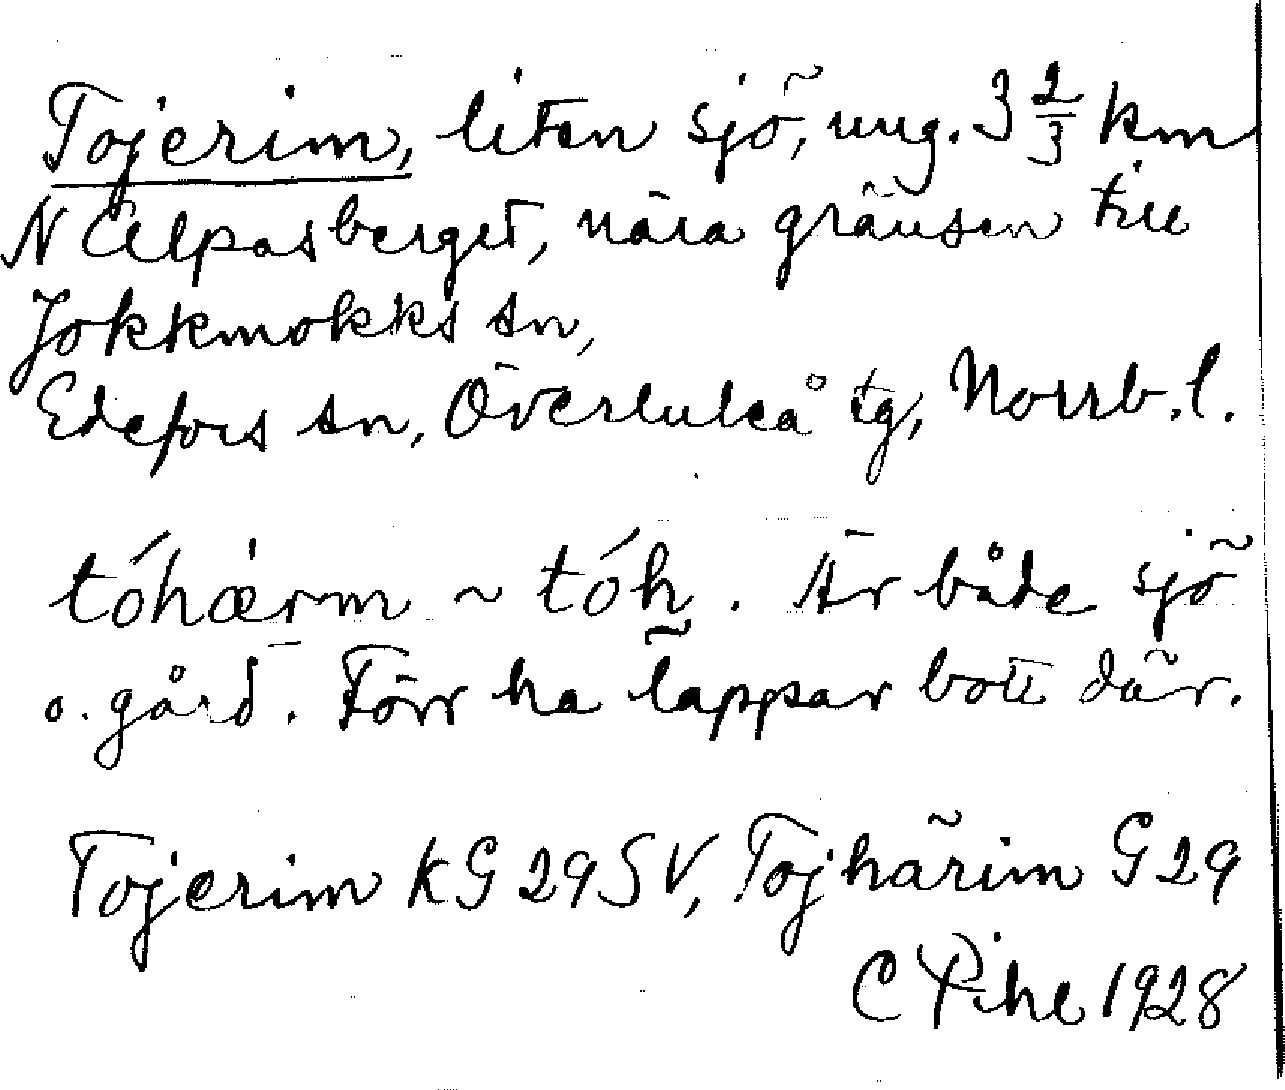 Tojerim, liten sjö, ung. 3 2/3 km
N Alpasberget, nära gränsen till
Jokkmokks sn,
Edefors sn, Överluleå tg, Norrb. l.
tóhærm ~ tóh̰. Är både sjö
o. gård. Förr ha lappar bott där.
Tojerim KG 29 SV, Tojhärim G 29
C Pihl 1928